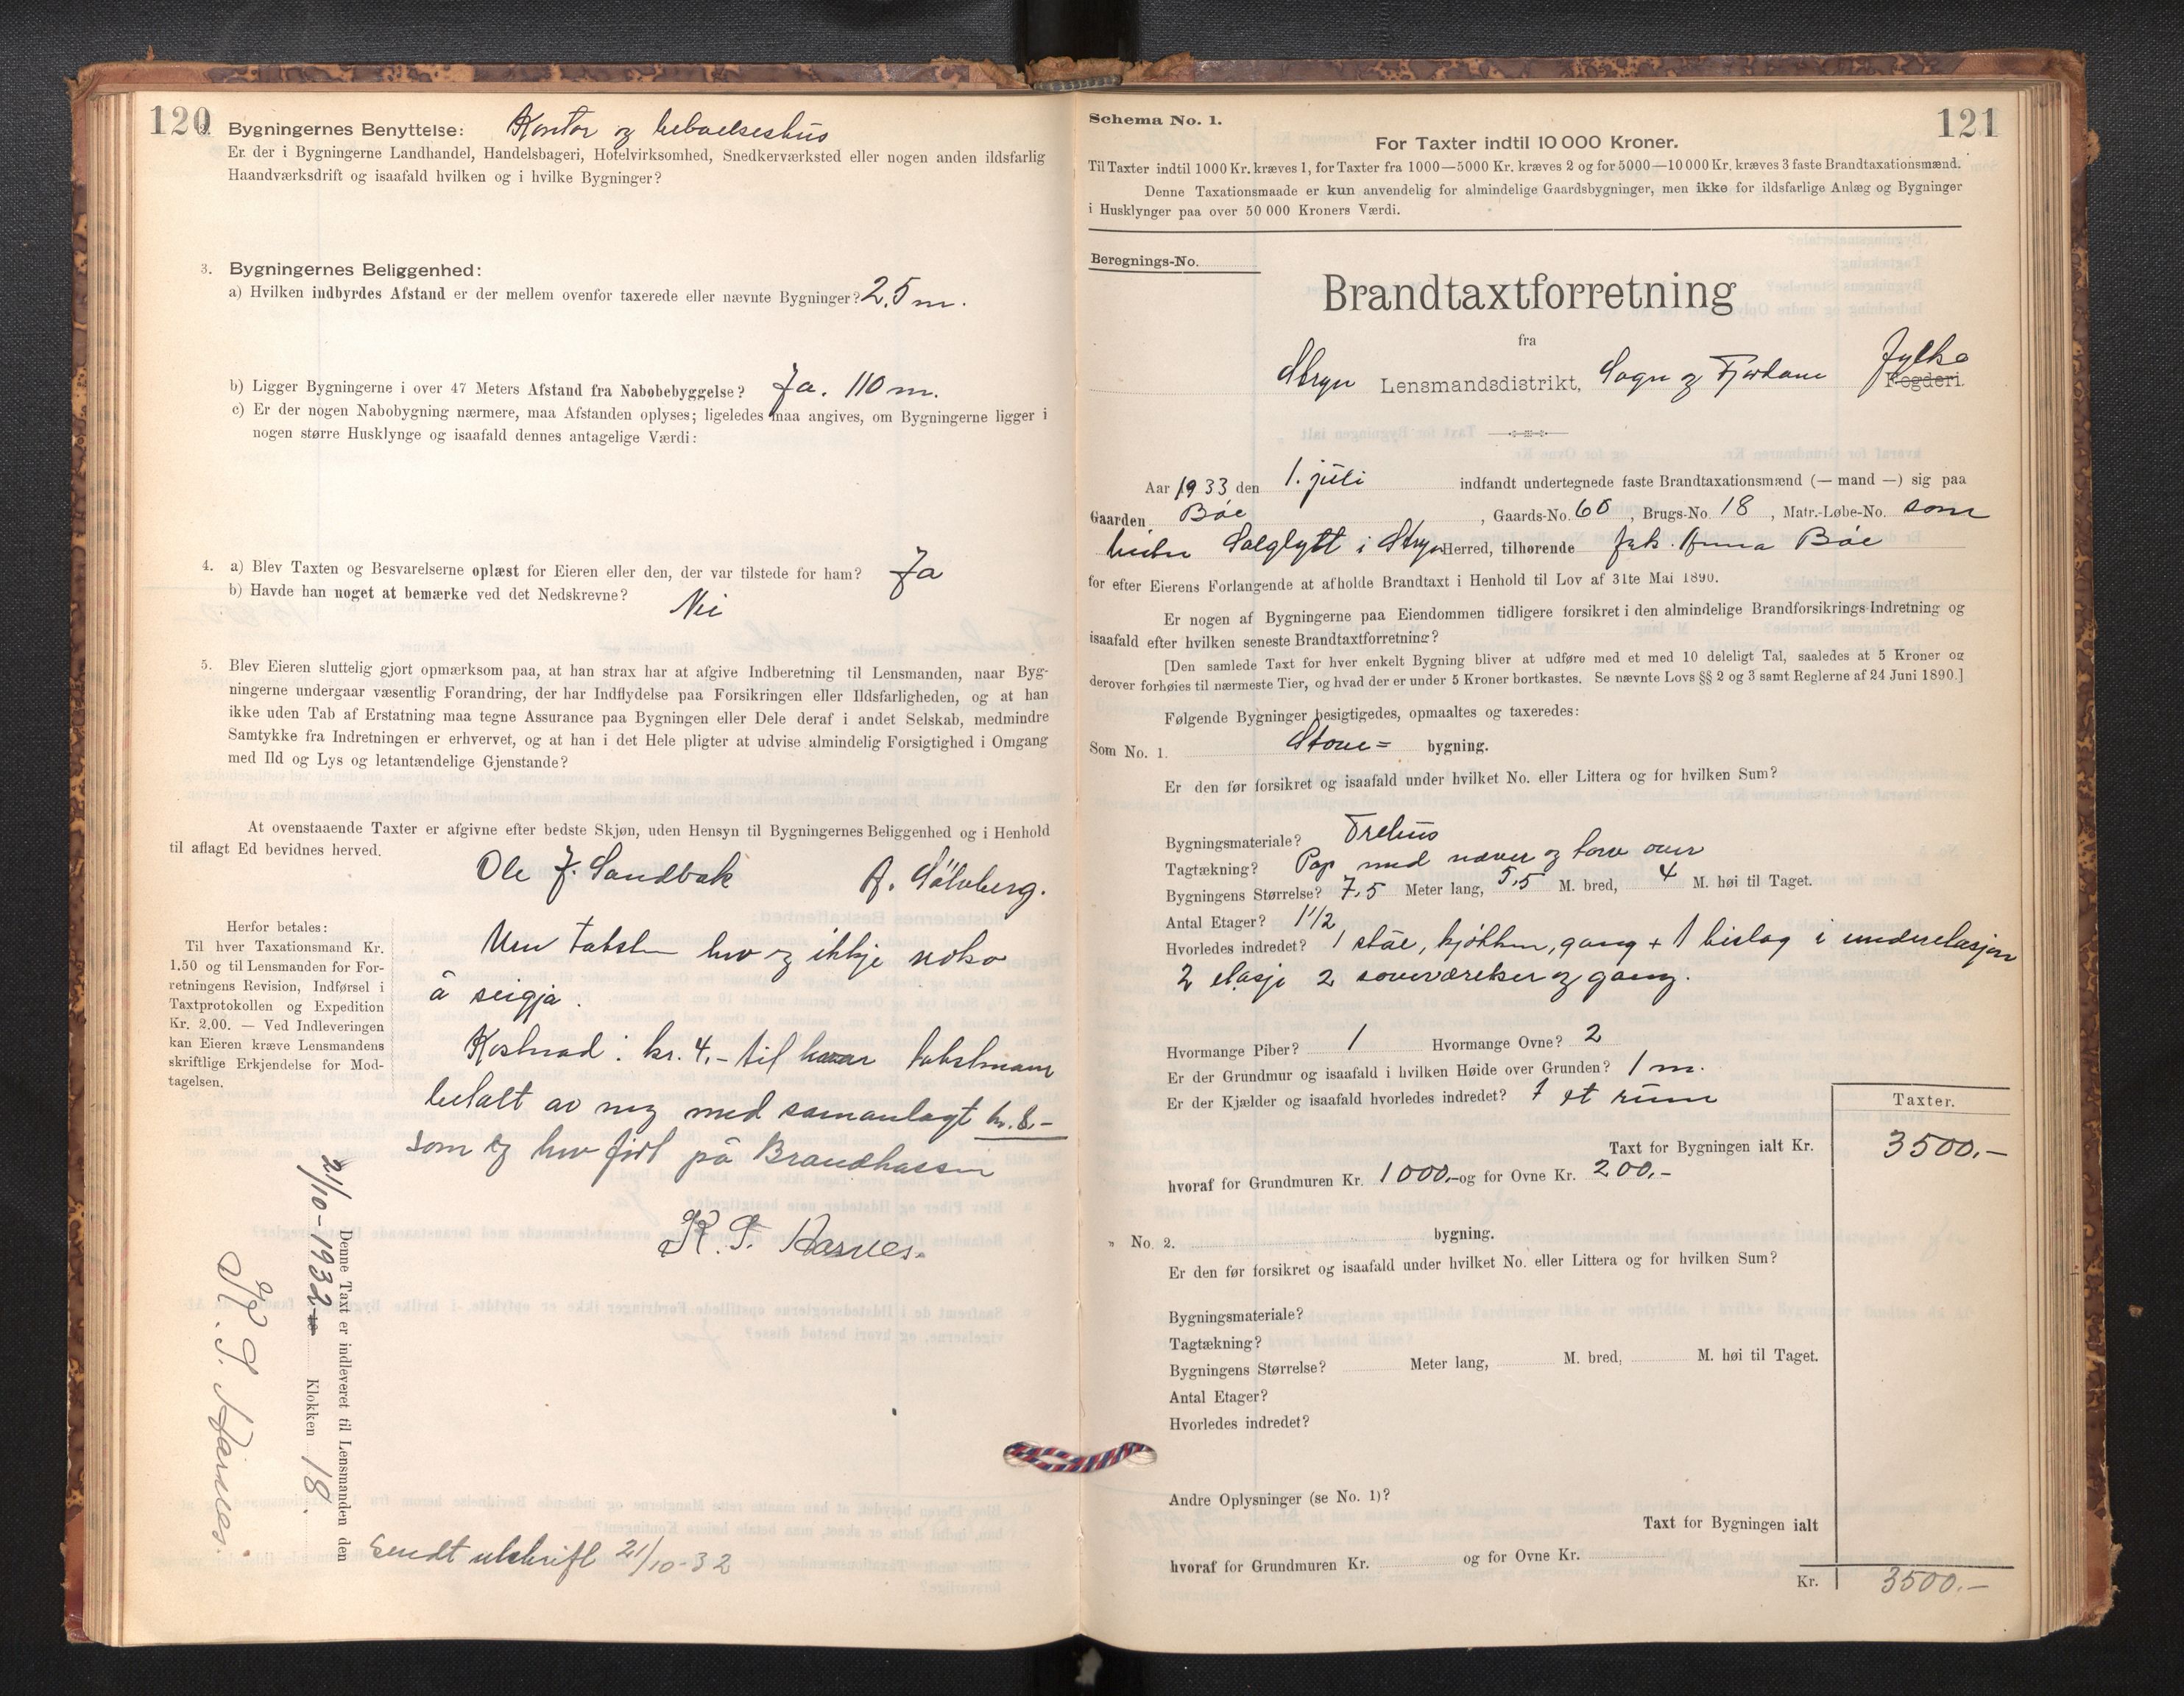 120
Bygningernes Benyttelse: Kontor og bebaelseshus
Er der i Bygningerne Landhandel, Handelsbageri, Hotelvirksomhed, Snedkerværksted eller nogen anden ildsfarlig
Haandværksdrift og isaafald hvilken og i hvilke Bygninger?
3. Bygningernes Beliggenhed:
a) Hvilken indbyrdes Afstand er der mellem ovenfor taxerede eller nævnte Bygninger? 2,5 m.
b) Ligger Bygningerne i over 47 Meters Afstand fra Nabobebyggelse? Ja. 110 m.
c) Er der nogen Nabobygning nærmere, maa Afstanden oplyses; ligeledes maa angives, om Bygningerne ligger i
nogen større Husklynge og isaafald dennes antagelige Værdi:
4. a) Blev Taxten og Besvarelserne oplæst for Eieren eller den, der var tilstede for ham? Ja
b) Havde han noget at bemærke ved det Nedskrevne? Nei
5. Blev Eieren sluttelig gjort opmærksom paa, at han strax har at afgive Indberetning til Lensmanden, naar Byg-
ningerne undergaar væsentlig Forandring, der har Indflydelse paa Forsikringen eller Ildsfarligheden, og at han
ikke uden Tab af Erstatning maa tegne Assurance paa Bygningen eller Dele deraf i andet Selskab, medmindre
Samtykke fra Indretningen er erhvervet, og at han i det Hele pligter at udvise almindelig Forsigtighed i Omgang
med Ild og Lys og letantændelige Gjenstande?
At ovenstaaende Taxter er afgivne efter bedste Skjøn, uden Hensyn til Bygningernes Beliggenhed og i Henhold
til aflagt Ed bevidnes herved.
Ole J. Sandbak A. Sölvberg.
Herfor betales:
Til hver Taxationsmand Kr.
1.50 og til Lensmanden for For-
retningens Revision, Indførsel i
Taxtprotokollen og Expedition
Kr. 2.00. — Ved Indleveringen
kan Eieren kræve Lensmandens
skriftlige Erkjendelse for Mod-
tagelsen.
Um taksten hev eg ikkje noko
å seigja.
Kostnad: kr. 4,- til kvar takstmann
betalt av meg med samanlagt kr. 8.-
som eg hev ført på Brandkassen
K. S. Aarnes.
Denne Taxt er indleveret til Lensmanden den
21/10-1932 Klokken 18.
K. S. Aarnes.
Sendt utskrift 21/10-32
121
Schema No. 1.
For Taxter indtil 10 000 Kroner.
Til Taxter indtil 1000 Kr. kræves 1, for Taxter fra 1000—5000 Kr. kræves 2 og for 5000—10 000 Kr. kræves 3 faste Brandtaxationsmænd.
Denne Taxationsmaade er kun anvendelig for almindelige Gaardsbygninger, men ikke for ildsfarlige Anlæg og Bygninger
i Husklynger paa over 50 000 Kroners Værdi.
Beregnings-No.
Brandtaxtforretning
fra
Stryn Lensmandsdistrikt, Sogn og Fjordane Fylke Fogderi.
Aar 1933 den 1. juli indfandt undertegnede faste Brandtaxationsmænd (— mand —) sig paa
Gaarden Böe, Gaards-No. 60, Brugs-No. 18, Matr.-Løbe-No. som
heiter Solglytt i Stryn Herred, tilhørende frk. Anna Böe
for efter Eierens Forlangende at afholde Brandtaxt i Henhold til Lov af 31te Mai 1890.
Er nogen af Bygningerne paa Eiendommen tidligere forsikret i den almindelige Brandforsikrings-Indretning og
isaafald efter hvilken seneste Brandtaxtforretning?
[Den samlede Taxt for hver enkelt Bygning bliver at udføre med et med 10 deleligt Tal, saaledes at 5 Kroner og
derover forhøies til nærmeste Tier, og hvad der er under 5 Kroner bortkastes. Se nævnte Lovs §§ 2 og 3 samt Reglerne af 24 Juni 1890.]
Følgende Bygninger besigtigedes, opmaaltes og taxeredes:
Som No. 1. Stove= bygning.
Er den før forsikret og isaafald under hvilket No. eller Littera og for hvilken Sum?
Bygningsmateriale? Trehus
Tagtækning? Pap med never og torv over
Bygningens Størrelse? 7,5 Meter lang, 5,5 M. bred, 4 M. høi til Taget.
Antal Etager? 1 1/2
Hvorledes indredet? 1 stue, kjøkken, gang + 1 bislag i underetasjen
2 etasje 2 soveværelser og gang.
Hvormange Piber? 1 Hvormange Ovne? 2
Er der Grundmur og isaafald i hvilken Høide over Grunden? 1 m.
Er der Kjælder og isaafald hvorledes indredet? 1 et rum
Taxter.
Taxt for Bygningen ialt Kr. 3500,-
hvoraf for Grundmuren Kr. 1000,- og for Ovne Kr. 200,-
" No. 2. bygning.
Er den før forsikret og isaafald under hvilket No. eller Littera og for hvilken Sum?
Bygningsmateriale?
Tagtækning?
Bygningens Størrelse? Meter lang, M. bred, M. høi til Taget.
Antal Etager?
Hvorledes indredet?
Andre Oplysninger (se No. 1)?
Taxt for Bygningen ialt
hvoraf for Grundmuren Kr. og for Ovne Kr.
Kr. 3500.-